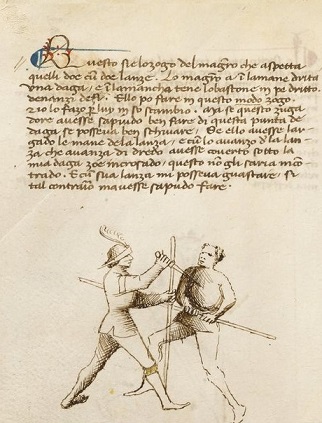 Questo sie lo zogo del magro che aspetta
quelli doe cū doe lanze. Lo magro a in la mane dritta
vna daga, e in la mancha tene lo bastone in pe dritto.
denanzi desi. Ello po fare in questo modo zogo.
zo lo fazo per luy in so scambio. Ma se questo zuga
dore auesse sapudo ben fare di questa punta de
daga se posseva ben schiuare, Se ello auesse lar-
gado le mane de la lanza, e cū lo auanzo de la lan
za che auanza di dredo auesse couerto sotto la
mia daga zoe incrosado, questo nō gli saria incō-
trado. E cū sua lanza mi posseua guastare, si
tal contrario mauesse sapudo fare.